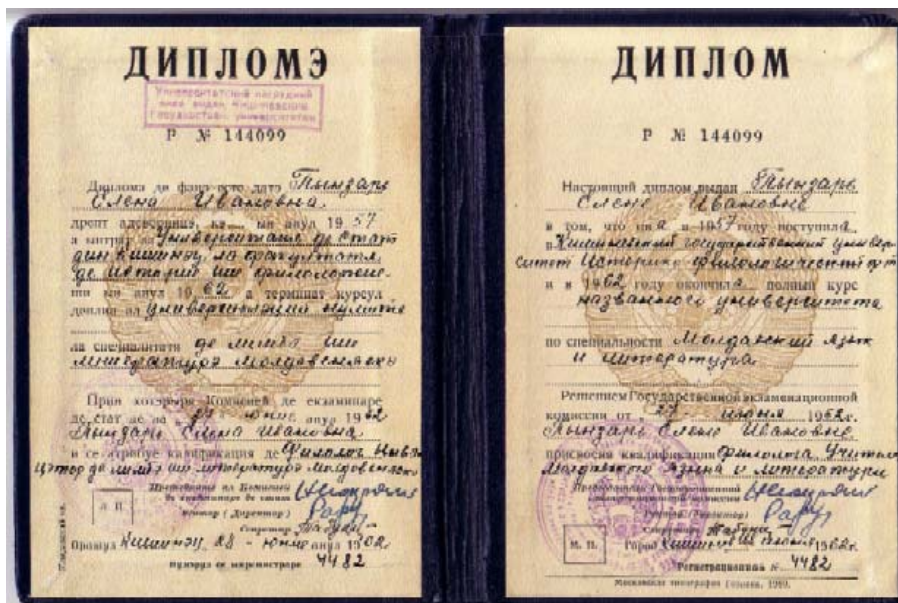 ДИПЛОМЭ
Университетский нагрудный
знак выдан Кишиневским
Государствен. университетом
Р № 144099
Диплома де фацэ есте датэ Тындарь
Елена Ивановна
дрепт адеверинцэ, кэ ын анул 1957
а интрат ла Университате де Стат
дин Кишинэу, ла факултатя
де Историе ши филоложие
ши ын анул 1962 а терминат курсул
деплин ал университэций нумите
ла специалитатя де лимбэ ши
литературэ молдовеняскэ
Прин хотэрыря Комисией де екзаминаре
де стат де ла 27 юние анул 1962
Тындарь Елена Ивановна
и се атрибуе калификация де Филолог Ынвэ
цэтор де лимбэ ши литературэ молдовеняскэ
Прешединтеле ал Комисией
де екзаминаре де стат
Ректор (Директор)
Секретар Табунс
Л. П.
Орашул Кишинэу, 28 - юние анул 1962
нумэрул де ынрежистраре 4482
ДИПЛОМ
Р № 144099
Настоящий диплом выдан Тындарь
Елене Ивановне
в том, что она в 1957 году поступила
в Кишиневский государственный универ-
ситет Историко-филологический фут
и в 1962 году окончила полный курс
названного университета
по специальности Молдавский язык
и литература
Решением Государственной экзаменационной
комиссии от 27 - июня 1962г.
Тындарь Елене Ивановне
присвоена квалификация Филолога, Учителя
Молдавского языка и литературы
Председатель Государственной
экзаменационной комиссии
Ректор (Директор)
Секретарь Табунс
М. П.
Город Кишинев 28 июня 1962г.
Регистрационный № 4482
Московская типография Гознака, 1960.